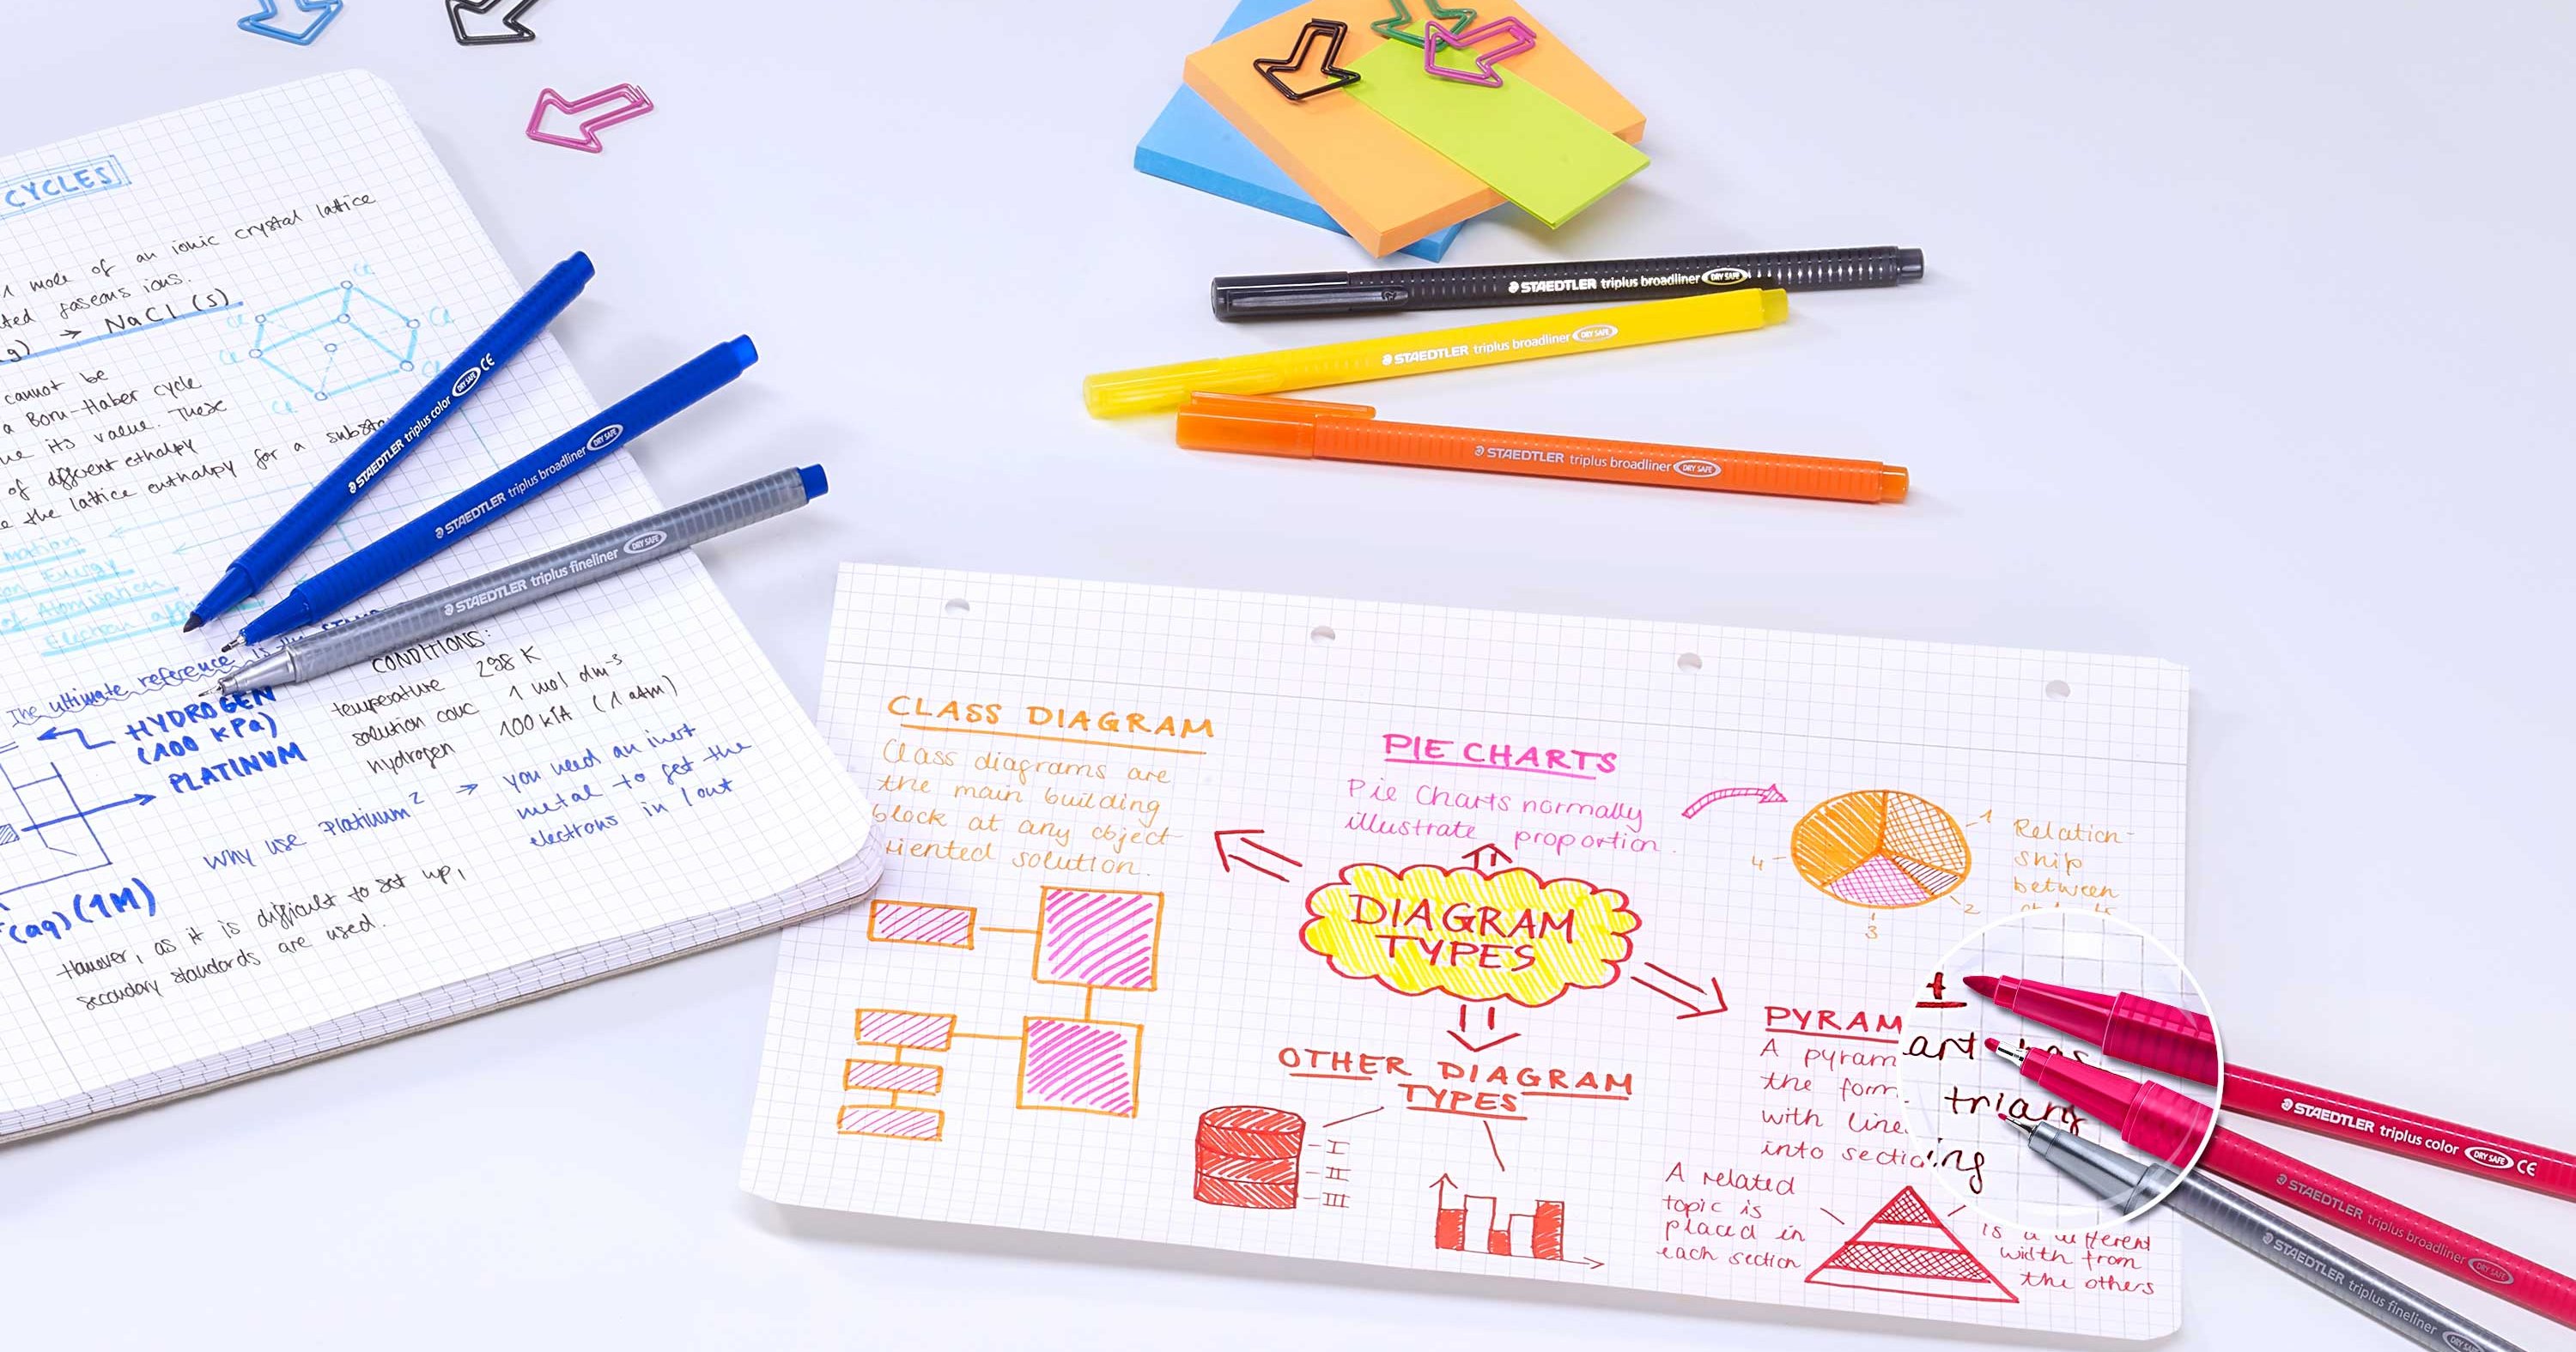 CYCLES
1 mole of an ionic crystal lattice
gaseous ions.
→ NaCl (s)
cannot be
a Born-Haber cycle
its value. These
of different ethalpy
the lattice enthalpy for a substa
Cl
Cl
Cl
Cl
Cl
Cl
The ultimate reference is the
HYDROGEN
(100 KPa)
PLATINUM
CONDITIONS:
temperature 298 K
solution conc 1 mol dm⁻³
hydrogen 100 kPA (1 atm)
Why use Platinum? → you need an inert
metal to get the
electrons in / out
(aq) (1M)
However, as it is difficult to set up,
secondary standards are used.
STAEDTLER triplus color DRY SAFE CE
STAEDTLER triplus broadliner DRY SAFE
STAEDTLER triplus fineliner DRY SAFE
STAEDTLER triplus broadliner DRY SAFE
STAEDTLER triplus broadliner DRY SAFE
STAEDTLER triplus broadliner DRY SAFE
CLASS DIAGRAM
Class diagrams are
the main building
block at any object
riented solution.
PIE CHARTS
Pie Charts normally
illustrate proportion.
1
2
3
4
Relation-
ship
between
DIAGRAM
TYPES
OTHER DIAGRAM
TYPES
I
II
III
PYRAM
A pyram
the form
with line
into sectio
art has
triang
ing
A related
topic is
placed in
each section
is a different
width from
the others
STAEDTLER triplus color DRY SAFE CE
STAEDTLER triplus broadliner DRY SAFE
STAEDTLER triplus fineliner DRY SAFE